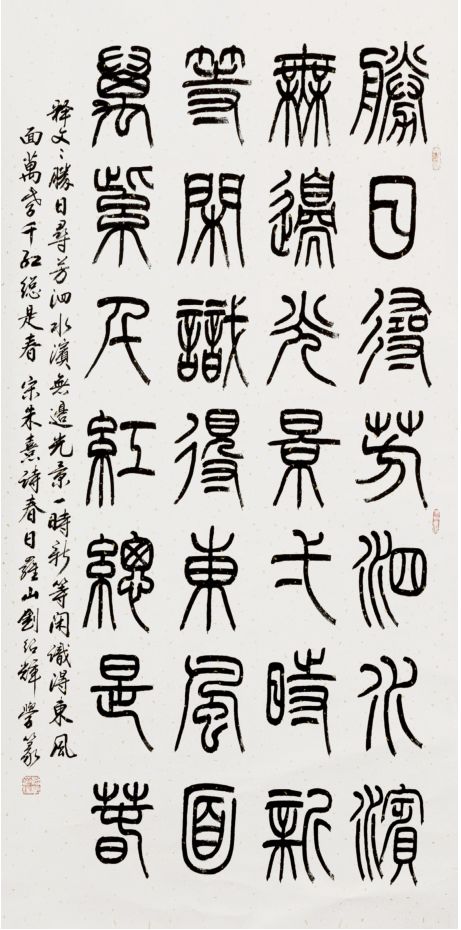 勝日尋芳泗水濱
無邊光景一時新
等閑識得東風面
萬紫千紅總是春
释文：勝日尋芳泗水濱無邊光景一時新等闲識得東風
面萬紫千红總是春 宋朱熹詩春日 羅山劉紹輝學篆